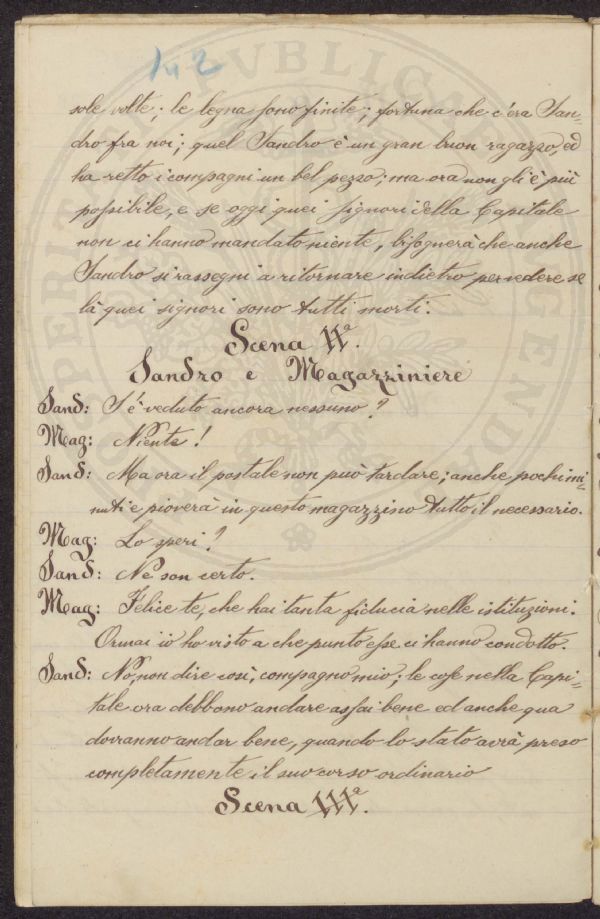 142
sole volte; le legna sono finite; fortuna che c'era San-
dro fra noi; quel Sandro è un gran buon ragazzo, ed
ha retto i compagni un bel pezzo; ma ora non gli è più
possibile, e se oggi quei signori della Capitale
non ci hanno mandato niente, bisognerà che anche
Sandro si rassegni a ritornare indietro per vedere se
là quei signori sono tutti morti.
Scena IIª.
Sandro e Magazziniere
Sand: S'è veduto ancora nessuno?
Mag: Niente!
Sand: Ma ora il postale non può tardare; anche pochi mi-
nuti e pioverà in questo magazzino tutto il necessario.
Mag: Lo speri?
Sand: Ne son certo.
Mag: Felice te, che hai tanta fiducia nelle istituzioni.
Ormai io ho visto a che punto esse ci hanno condotto.
Sand: No, non dire così, compagno mio; le cose nella Capi-
tale ora debbono andare assai bene ed anche qua
dovranno andar bene, quando lo stato avrà preso
completamente il suo corso ordinario
Scena IIIª.